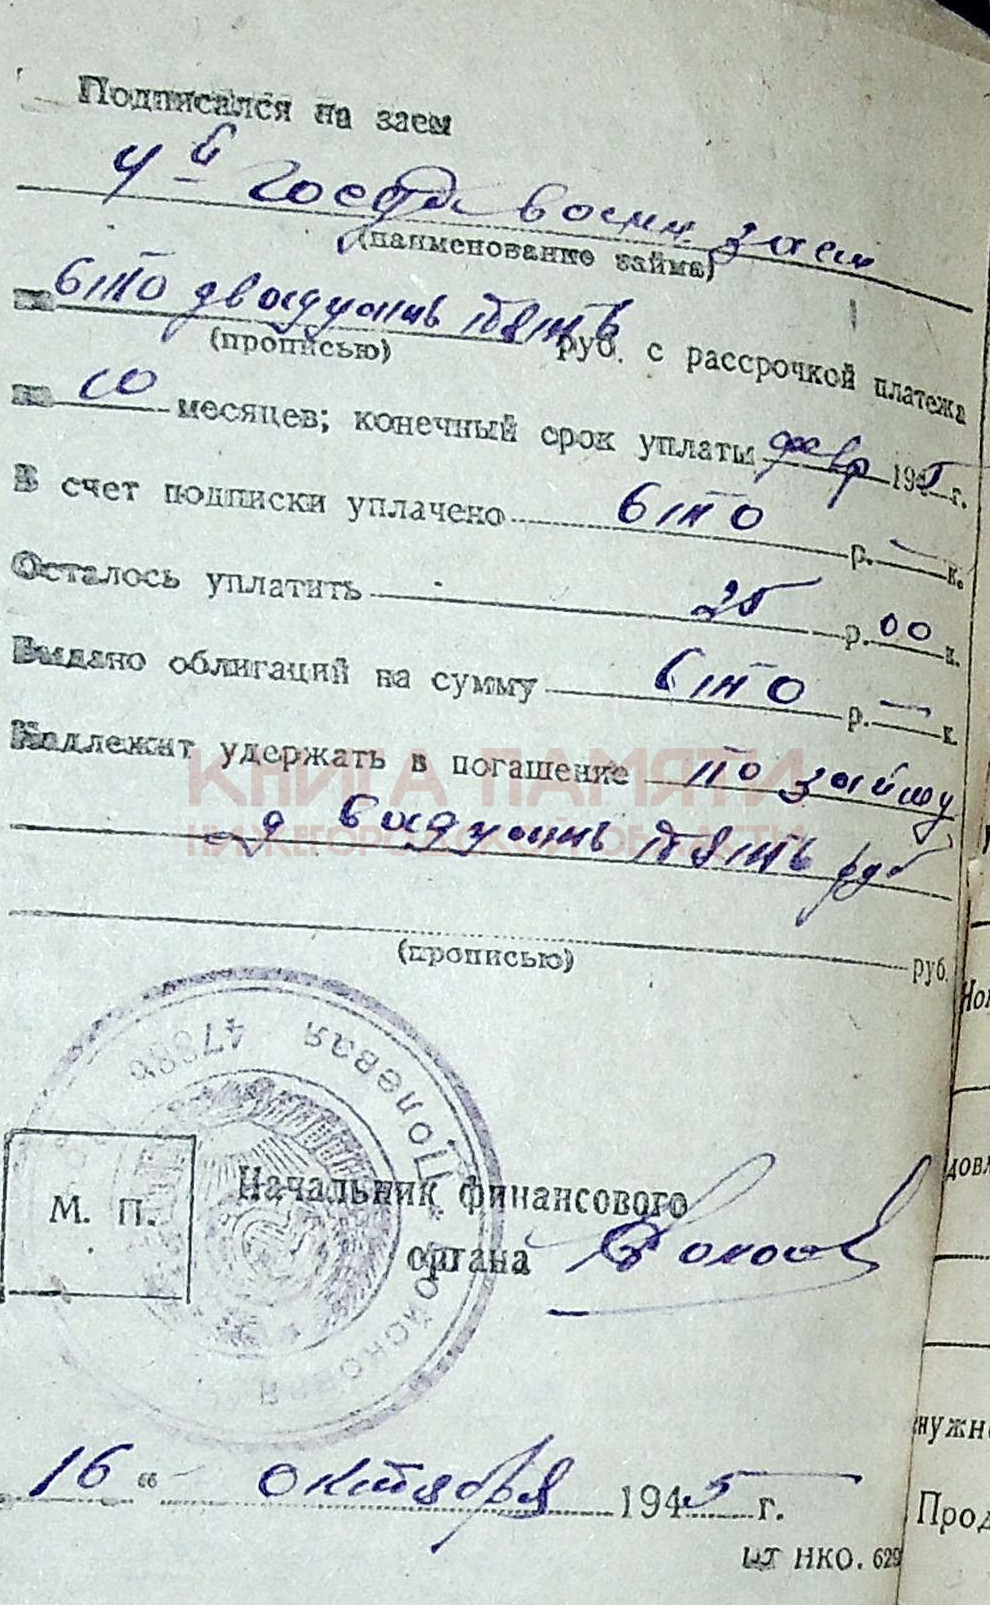 Подписался на заем
4й госуд воен заем
(наименование займа)
на сто двадцать пять руб. с рассрочкой платежа
(прописью)
на 10 месяцев; конечный срок уплаты февр 1945 г.
В счет подписки уплачено сто р. — к.
Осталось уплатить 25 р. 00 к.
Выдано облигаций на сумму сто р. — к.
Надлежит удержать в погашение по займу
двадцать пять руб
(прописью) руб.
КНИГА ПАМЯТИ
НИЖЕГОРОДСКОЙ ОБЛАСТИ
Полевая
Войсковая
М. П.
Начальник финансового
органа
16 " октября 1945 г.
НКО. 629
Ном
довл
нужно
Прод